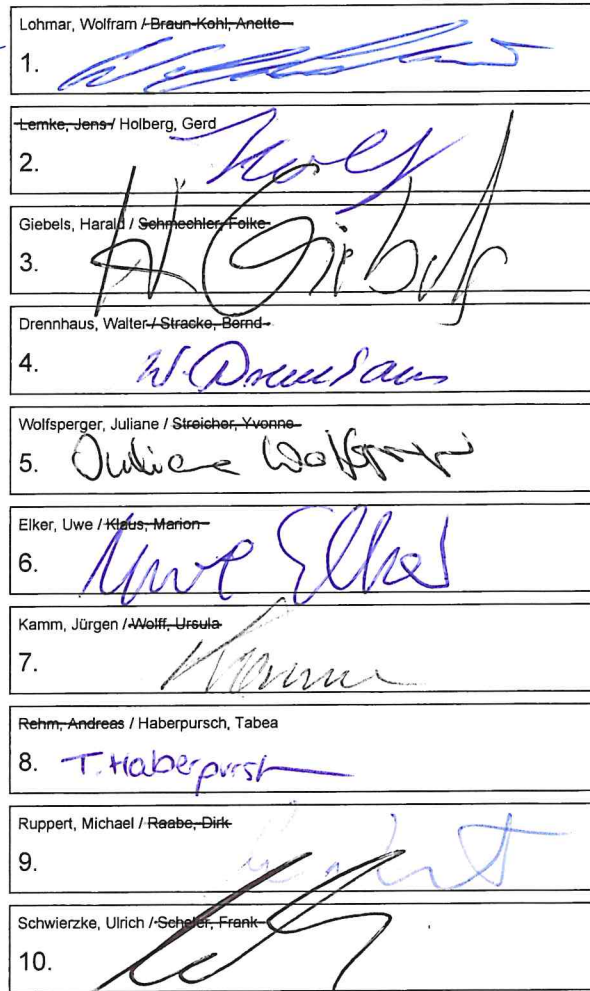 Lohmar, Wolfram / Braun-Kohl, Anette
1.
Lemke, Jens / Holberg, Gerd
2.
Giebels, Harald / Schmechler, Folke
3. H Giebels
Drennhaus, Walter / Stracke, Bernd
4. W. Drennhaus
Wolfsperger, Juliane / Streicher, Yvonne
5. Juliane Wolfsperger
Elker, Uwe / Klaus, Marion
6. Uwe Elker
Kamm, Jürgen / Wolff, Ursula
7. Kamm
Rehm, Andreas / Haberpursch, Tabea
8. T. Haberpursch
Ruppert, Michael / Raabe, Dirk
9.
Schwierzke, Ulrich / Schefer, Frank
10.